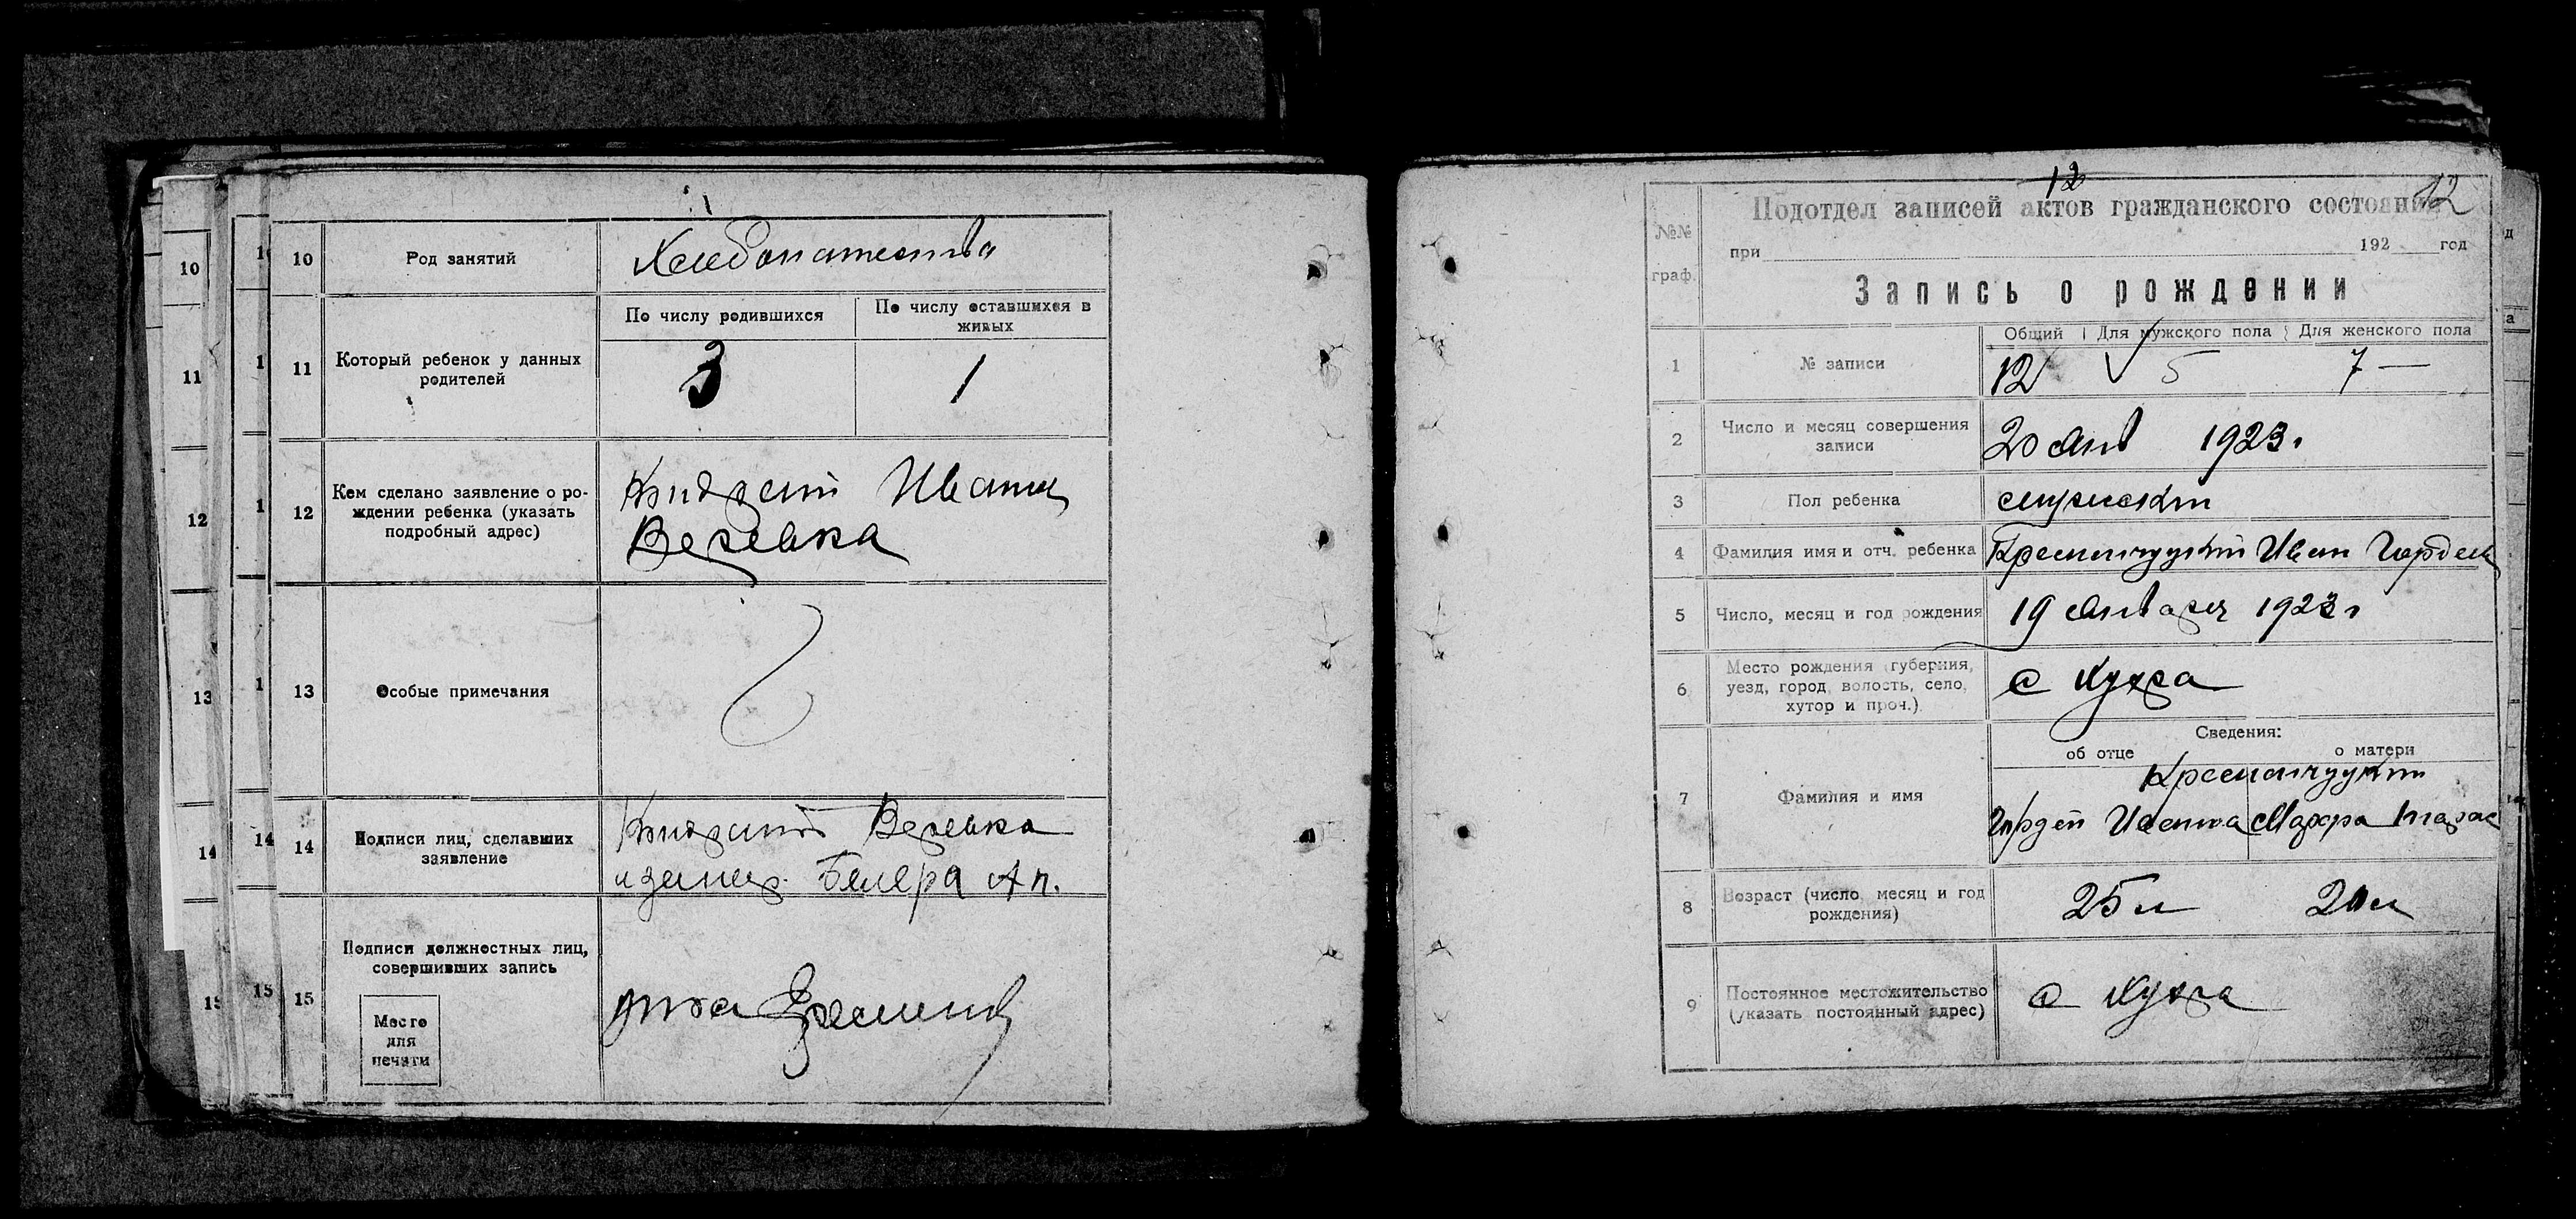 10 Род занятий Хлебопашество
11 Который ребенок у данных
родителей
По числу родившихся
По числу оставшихся в
живых
3 1
12 Кем сделано заявление о ро-
ждении ребенка (указать
подробный адрес)
Иванов
Веревка
13 Особые примечания
14 Подписи лиц, сделавших
заявление
Веревка
Ап.
15 Подписи должностных лиц,
совершивших запись
Место
для
печати
12
12
№№
граф.
Подотдел записей актов гражданского состояния
при 192 год
Запись о рождении
Общий Для мужского пола Для женского пола
1 № записи 12 5 7 —
2 Число и месяц совершения
записи
20 янв 1923г
3 Пол ребенка мужской
4 Фамилия имя и отч. ребенка Кременчуцкий Иван Гордеев
5 Число, месяц и год рождения 19 января 1923г
6 Место рождения (губерния,
уезд, город, волость, село,
хутор и проч.)
с
Сведения:
об отце о матери
7 Фамилия и имя
Кременчуцкий
Гордей Иванов Марфа Тарас
8 Возраст (число, месяц и год
рождения)
25 л
9 Постоянное местожительство
(указать постоянный адрес)
с
10
11
12
13
14
15
14
15